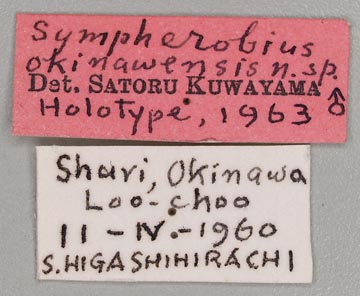 Sympherobius
okinawensis n. sp.
Det. SATORU KUWAYAMA ♂
Holotype, 1963
Shuri, Okinawa
Loo-choo
11-IV-1960
S. HIGASHIHIRACHI